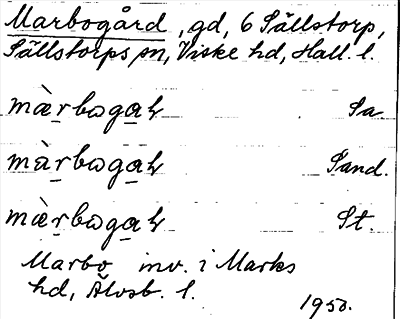 Marbogård, gd, 6 Sällstorp,
Sällstorps sn, Viske hd, Hall. l.
màrbωgaɂ Sa
màrbωgaɂ Sand.
màrbωgaɂ St.
Marbo inv. i Marks
hd, Älvsb. l.
1950.